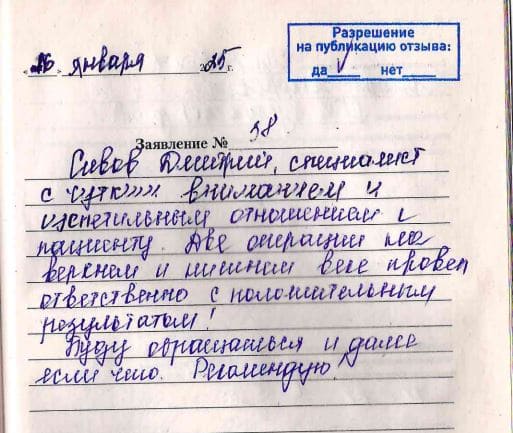 Разрешение
на публикацию отзыва:
да нет
«26» января 2025 г.
Заявление № 38
Сивов Дмитрий, специалист
с чутким вниманием и
отношением к
пациенту. Две операции на
верхнем и нижнем веке провел
ответственно с положительным
результатом!
Буду обращаться и далее
если что. Рекомендую!